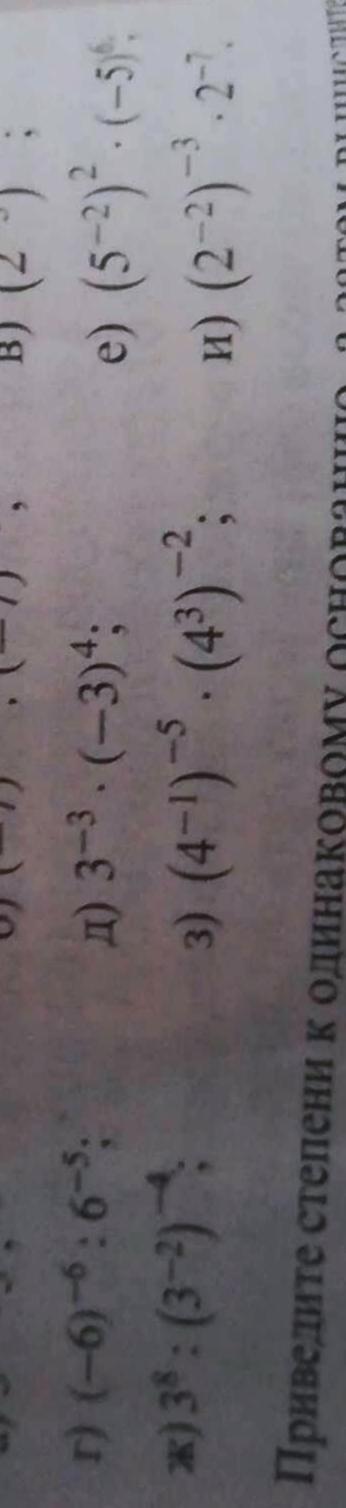 в) (2
г) (−6)⁻⁶ : 6⁻⁵; д) 3⁻³ · (−3)⁴; е) (5⁻²)² · (−5)⁶;
ж) 3⁸ : (3⁻²)⁻⁴; з) (4⁻¹)⁻⁵ · (4³)⁻²; и) (2⁻²)⁻³ · 2⁻⁷.
Приведите степени к одинаковому основанию, а затем вычислите